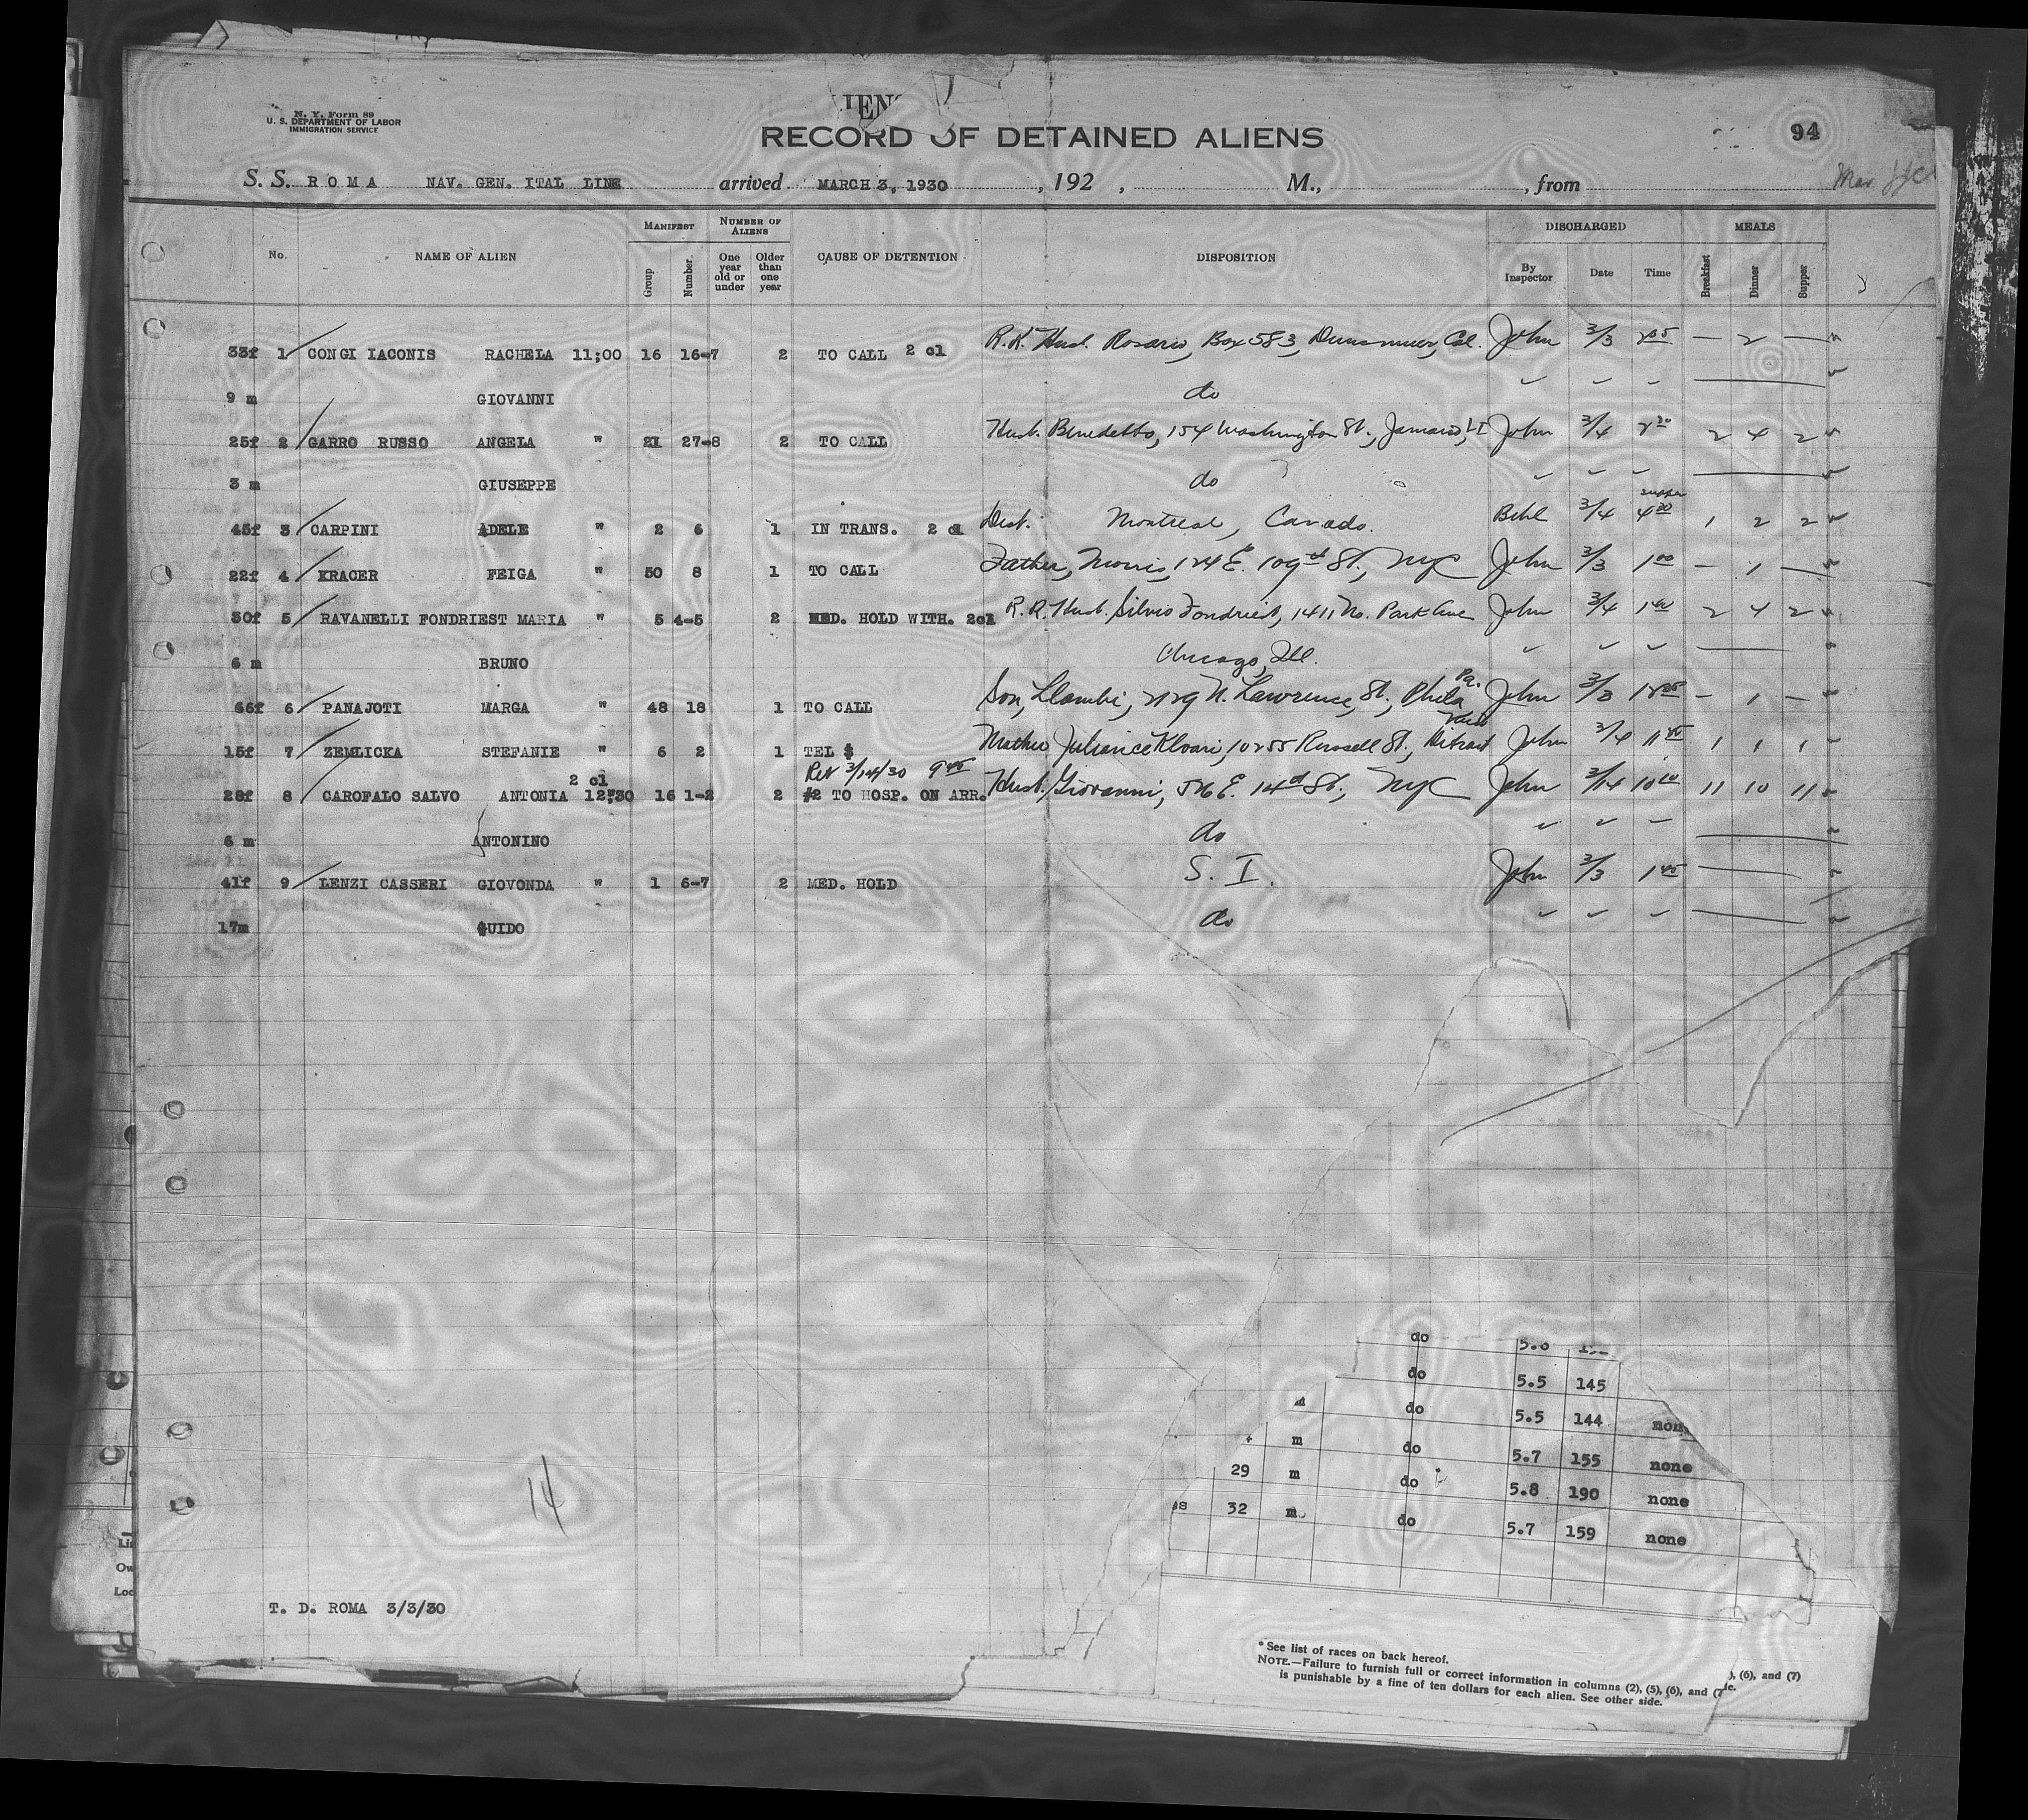 N. Y. Form 89
U. S. DEPARTMENT OF LABOR
IMMIGRATION SERVICE
RECORD OF DETAINED ALIENS
94
S. S. ROMA NAV. GEN. ITAL LINE arrived MARCH 3, 1930, 192 , M., , from
No. NAME OF ALIEN MANIFEST Group Number NUMBER OF ALIENS One year old or under Older than one year CAUSE OF DETENTION DISPOSITION DISCHARGED By Inspector Date Time MEALS Breakfast Dinner Supper
33f 1 CONGI IACONIS RACHELA 11;00 16 16-7 2 TO CALL 2 cl R.R. Husb. Rosario, Box 583, Dunsmuir, Cal. John 3/3 — 2 —
9 m GIOVANNI do
25f 2 GARRO RUSSO ANGELA " 21 27-8 2 TO CALL Husb. Benedetto, 154 Washington St., Jamaica, LI John 3/4 2 4 2
3 m GIUSEPPE do
45f 3 CARPINI ADELE " 2 6 1 IN TRANS. 2 cl Dest. Montreal, Canada. 3/4 supper 4 30 1 2 2
22f 4 KRACER FEIGA " 50 8 1 TO CALL Father, Morris, 124 E. 109th St., NYC John 3/3 1 00 — 1 —
30f 5 RAVANELLI FONDRIEST MARIA " 5 4-5 2 MED. HOLD WITH. 2cl R.R. Husb. Silvio Fondriest, 1411 No. Park Ave John 3/4 2 4 2
6 m BRUNO Chicago, Ill.
66f 6 PANAJOTI MARGA " 48 18 1 TO CALL Son, Llambi, 2129 N. Lawrence, St., Phila Pa. John 3/3 — 1 —
15f 7 ZEMLICKA STEFANIE " 6 2 1 TEL $ Mother 10255 Russell St., Detroit Mich John 3/4 1 1 1
Ret 3/14/30 9 45
28f 8 CAROFALO SALVO ANTONIA 2 cl 12;30 16 1-2 2 #2 TO HOSP. ON ARR. Husb. Giovanni, 516 E. 14th St., NYC John 3/14 11 10 11
6 m ANTONINO do
41f 9 LENZI CASSERI GIOVONDA " 1 6-7 2 MED. HOLD S. I. John 3/3 1 45
17m GUIDO do
do 5.0
do 5.5 145
m do 5.5 144 non
m do 5.7 155 none
29 m do 5.8 190 none
32 m do 5.7 159 none
14
T. D. ROMA 3/3/30
* See list of races on back hereof.
NOTE.—Failure to furnish full or correct information in columns (2), (5), (6), and (7
is punishable by a fine of ten dollars for each alien. See other side.
), (6), and (7)